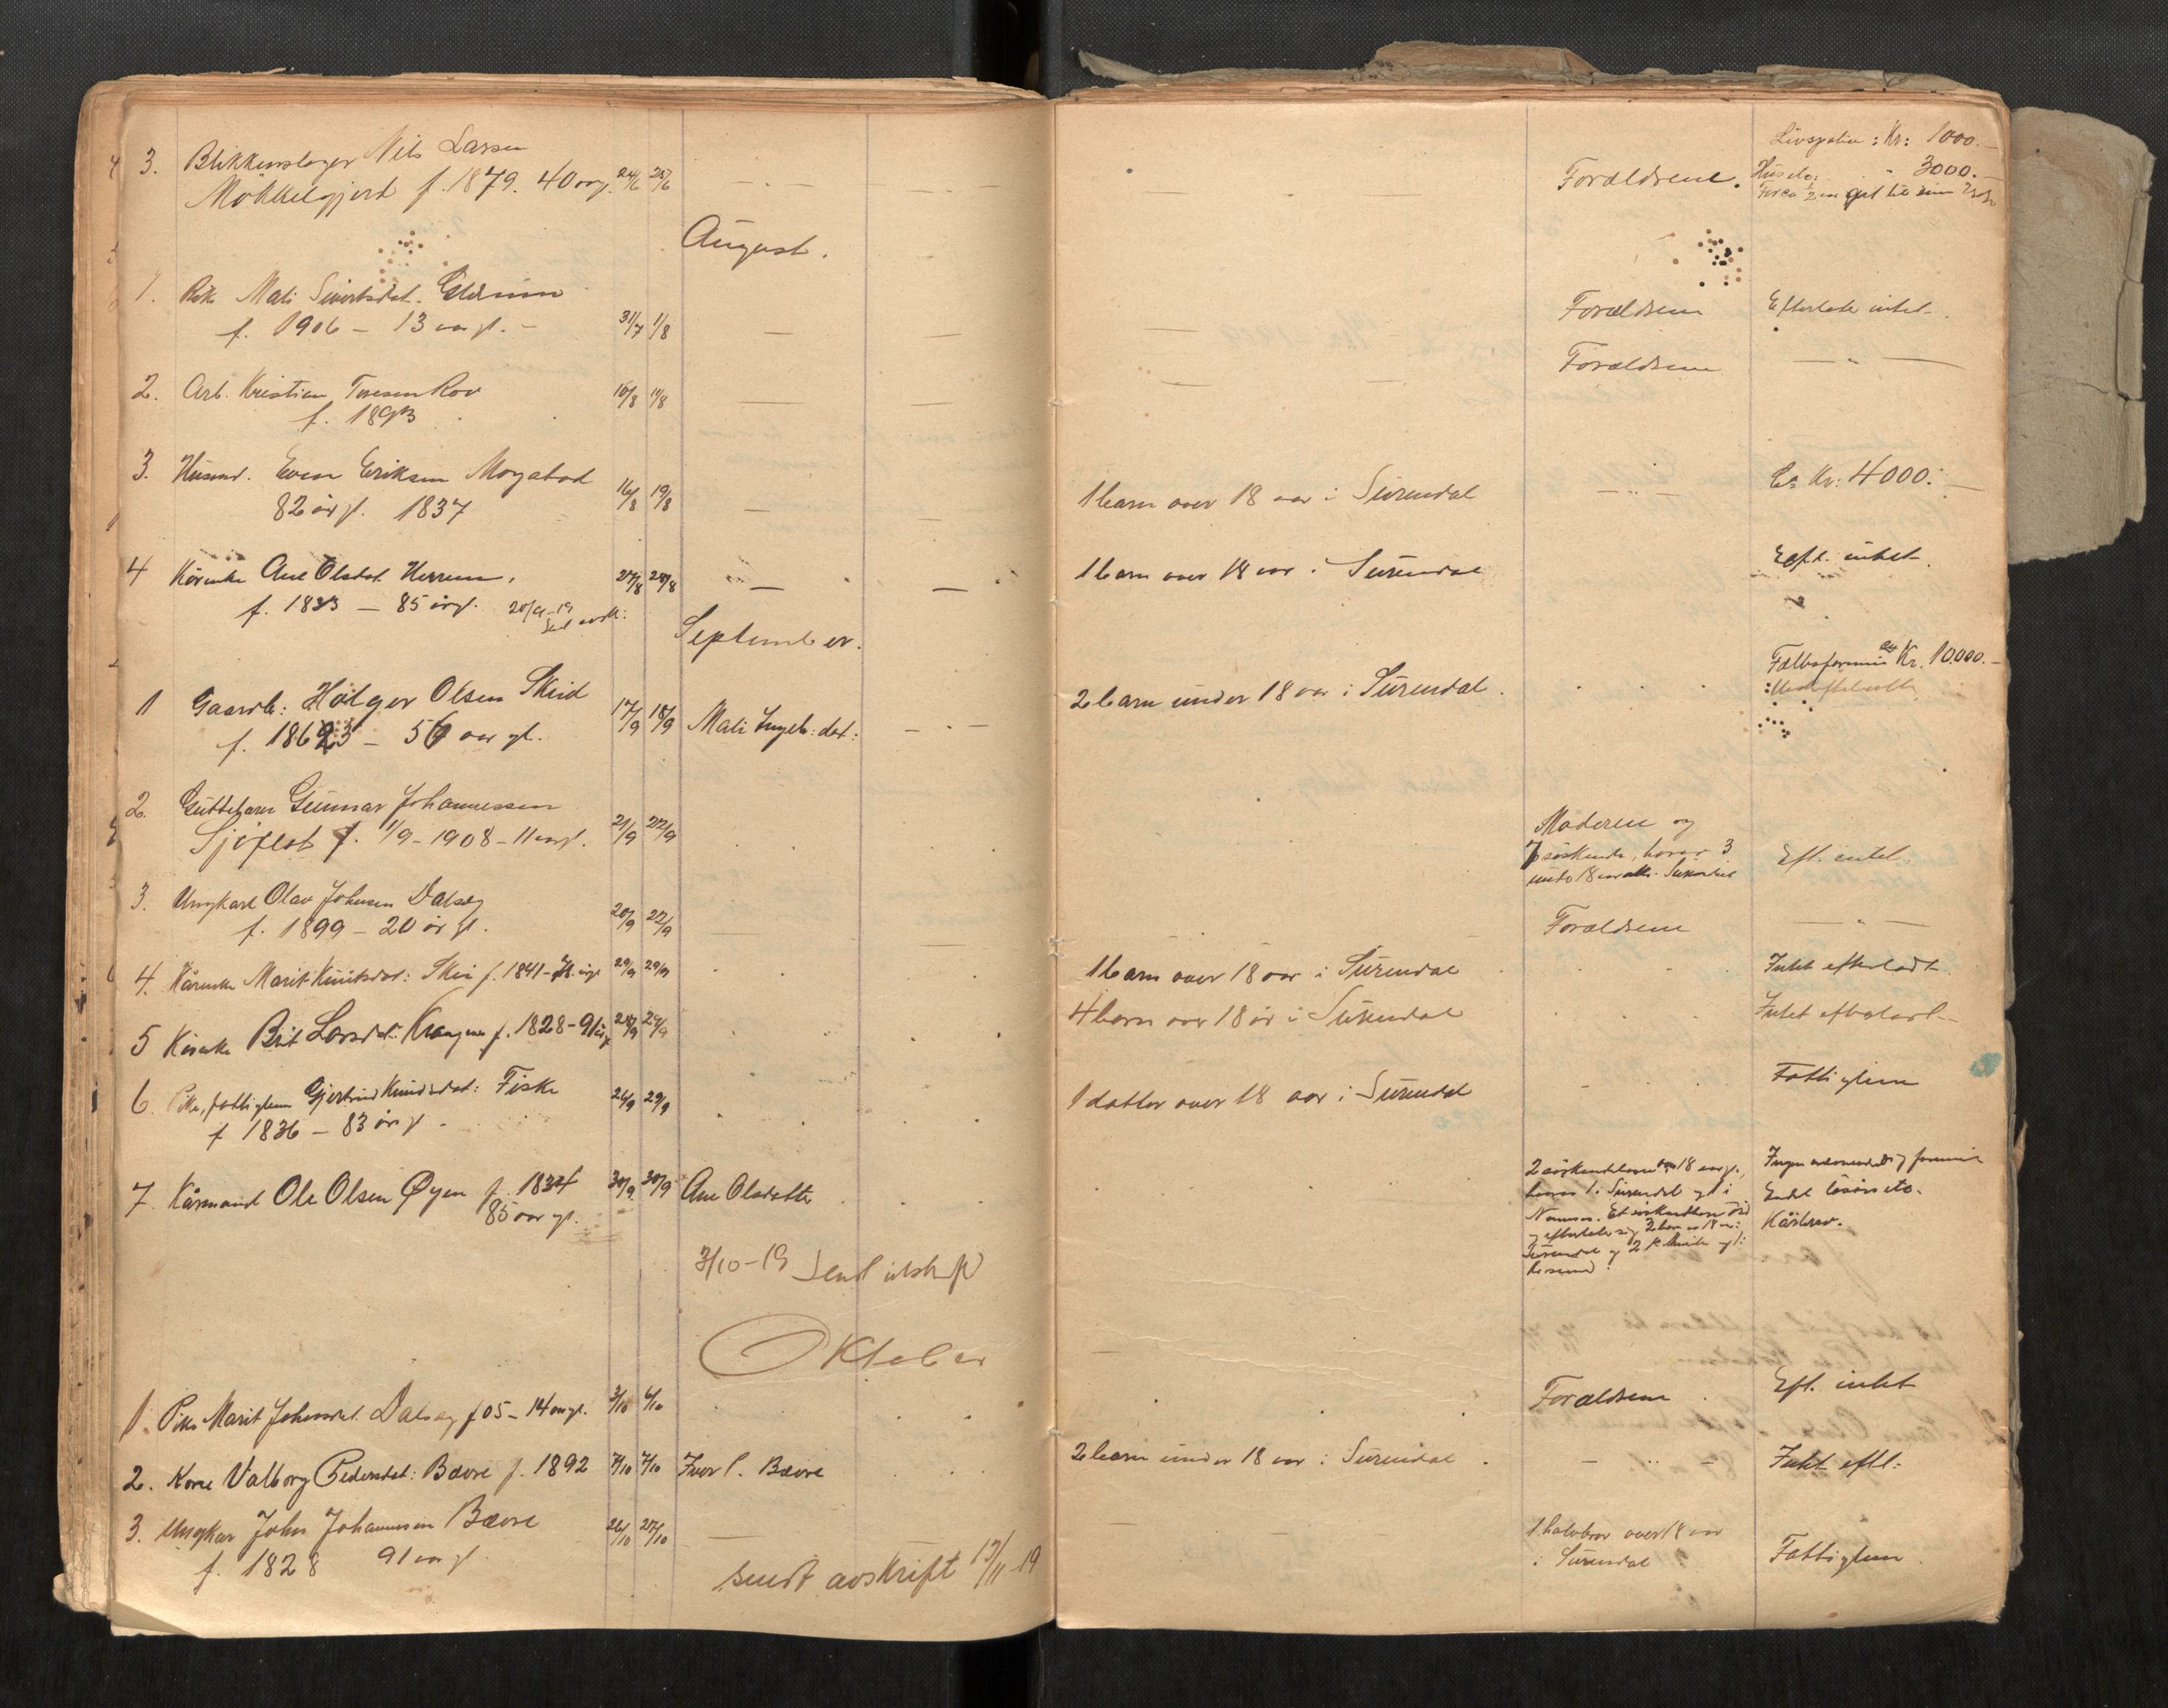 3. Blikkenslager Nils Larsen
Mökkelgjerd f. 1879. 40 aarg. 24/6 25/6 Forældrene.
Kr: 1000.—
Hus etc: 3000.—
August.
1. Pike Mali Sivertsdat.
f. 1906 — 13 aar gl. — 31/7 1/8 Forældrene Efterlate intet.
2. Arb. Kristian Toresen Rov
f. 1893 10/8 11/8 Forældrene — " —
3. Husmd. Even Eriksen Mogstad
82 år gl. 1837 16/8 19/8 1 barn over 18 aar i Surendal Ca Kr: 4000.—
4 Kårenke Ane Olsdat. Herrem.
f. 1833 — 85 årgl. 27/8 28/8 1 barn over 18 aar i Surendal Eft. intet.
September.
1 Gaardb: Holger Olsen Skeid
f. 1863 — 56 aar gl. 17/9 18/9 Mali Ingeb: dat: 2 barn under 18 aar i Surendal. Kr. 10.000.—
2. Guttebarn Gunnar Johannessen
Sjöflot f. 1/9 - 1908 - 11 aargl. 21/9 22/9 Moderen og
7 söskende, horav 3
under 18 aar Eft. intet.
3. Ungkarl Olav Johnsen Dalseg
f. 1899 — 20 år gl. 20/9 22/9 Forældrene — " —
4. Kårenke Marit Knutsdat: Skei f. 1841 29/9 1 barn over 18 aar i Surendal Intet efterladt
5 Kårenke Brit Larsdat: f. 1828 — 91 år 29/9 4 barn over 18 år i Surendal Intet efterladt
6. Pike, fattiglem Gjertrud Knudsdat: Fiske
f 1836 — 83 år gl. 26/9 29/9 1 datter over 18 aar i Surendal Fattiglem
7. Kårmand Ole Olsen Øyen f. 1834
85 aar gl. 30/9 30/9 Ane Olsdatter
2 söskendebarn 18 aar gl.,
horav 1 i Surendal og 1 i
Ingen
Endel lösöre etc.
3/10-19 Send utskrift
Oktober
1. Pike Marit Johnsdat. Dalseg f 05 — 14 aar gl. 3/10 6/10 Forældrene Eft. intet
2. Kone Valborg Pedersdat: Bævre f. 1892 7/10 7/10 Iver P. Bævre 2 barn under 18 aar i Surendal. — " — Intet eftl:
3. Ungkar John Johannessen Bævre
f. 1828 91 aar gl. 26/10 27/10 1 halvbror over 18 aar
i Surendal Fattiglem
sendt avskrift 13/11-19